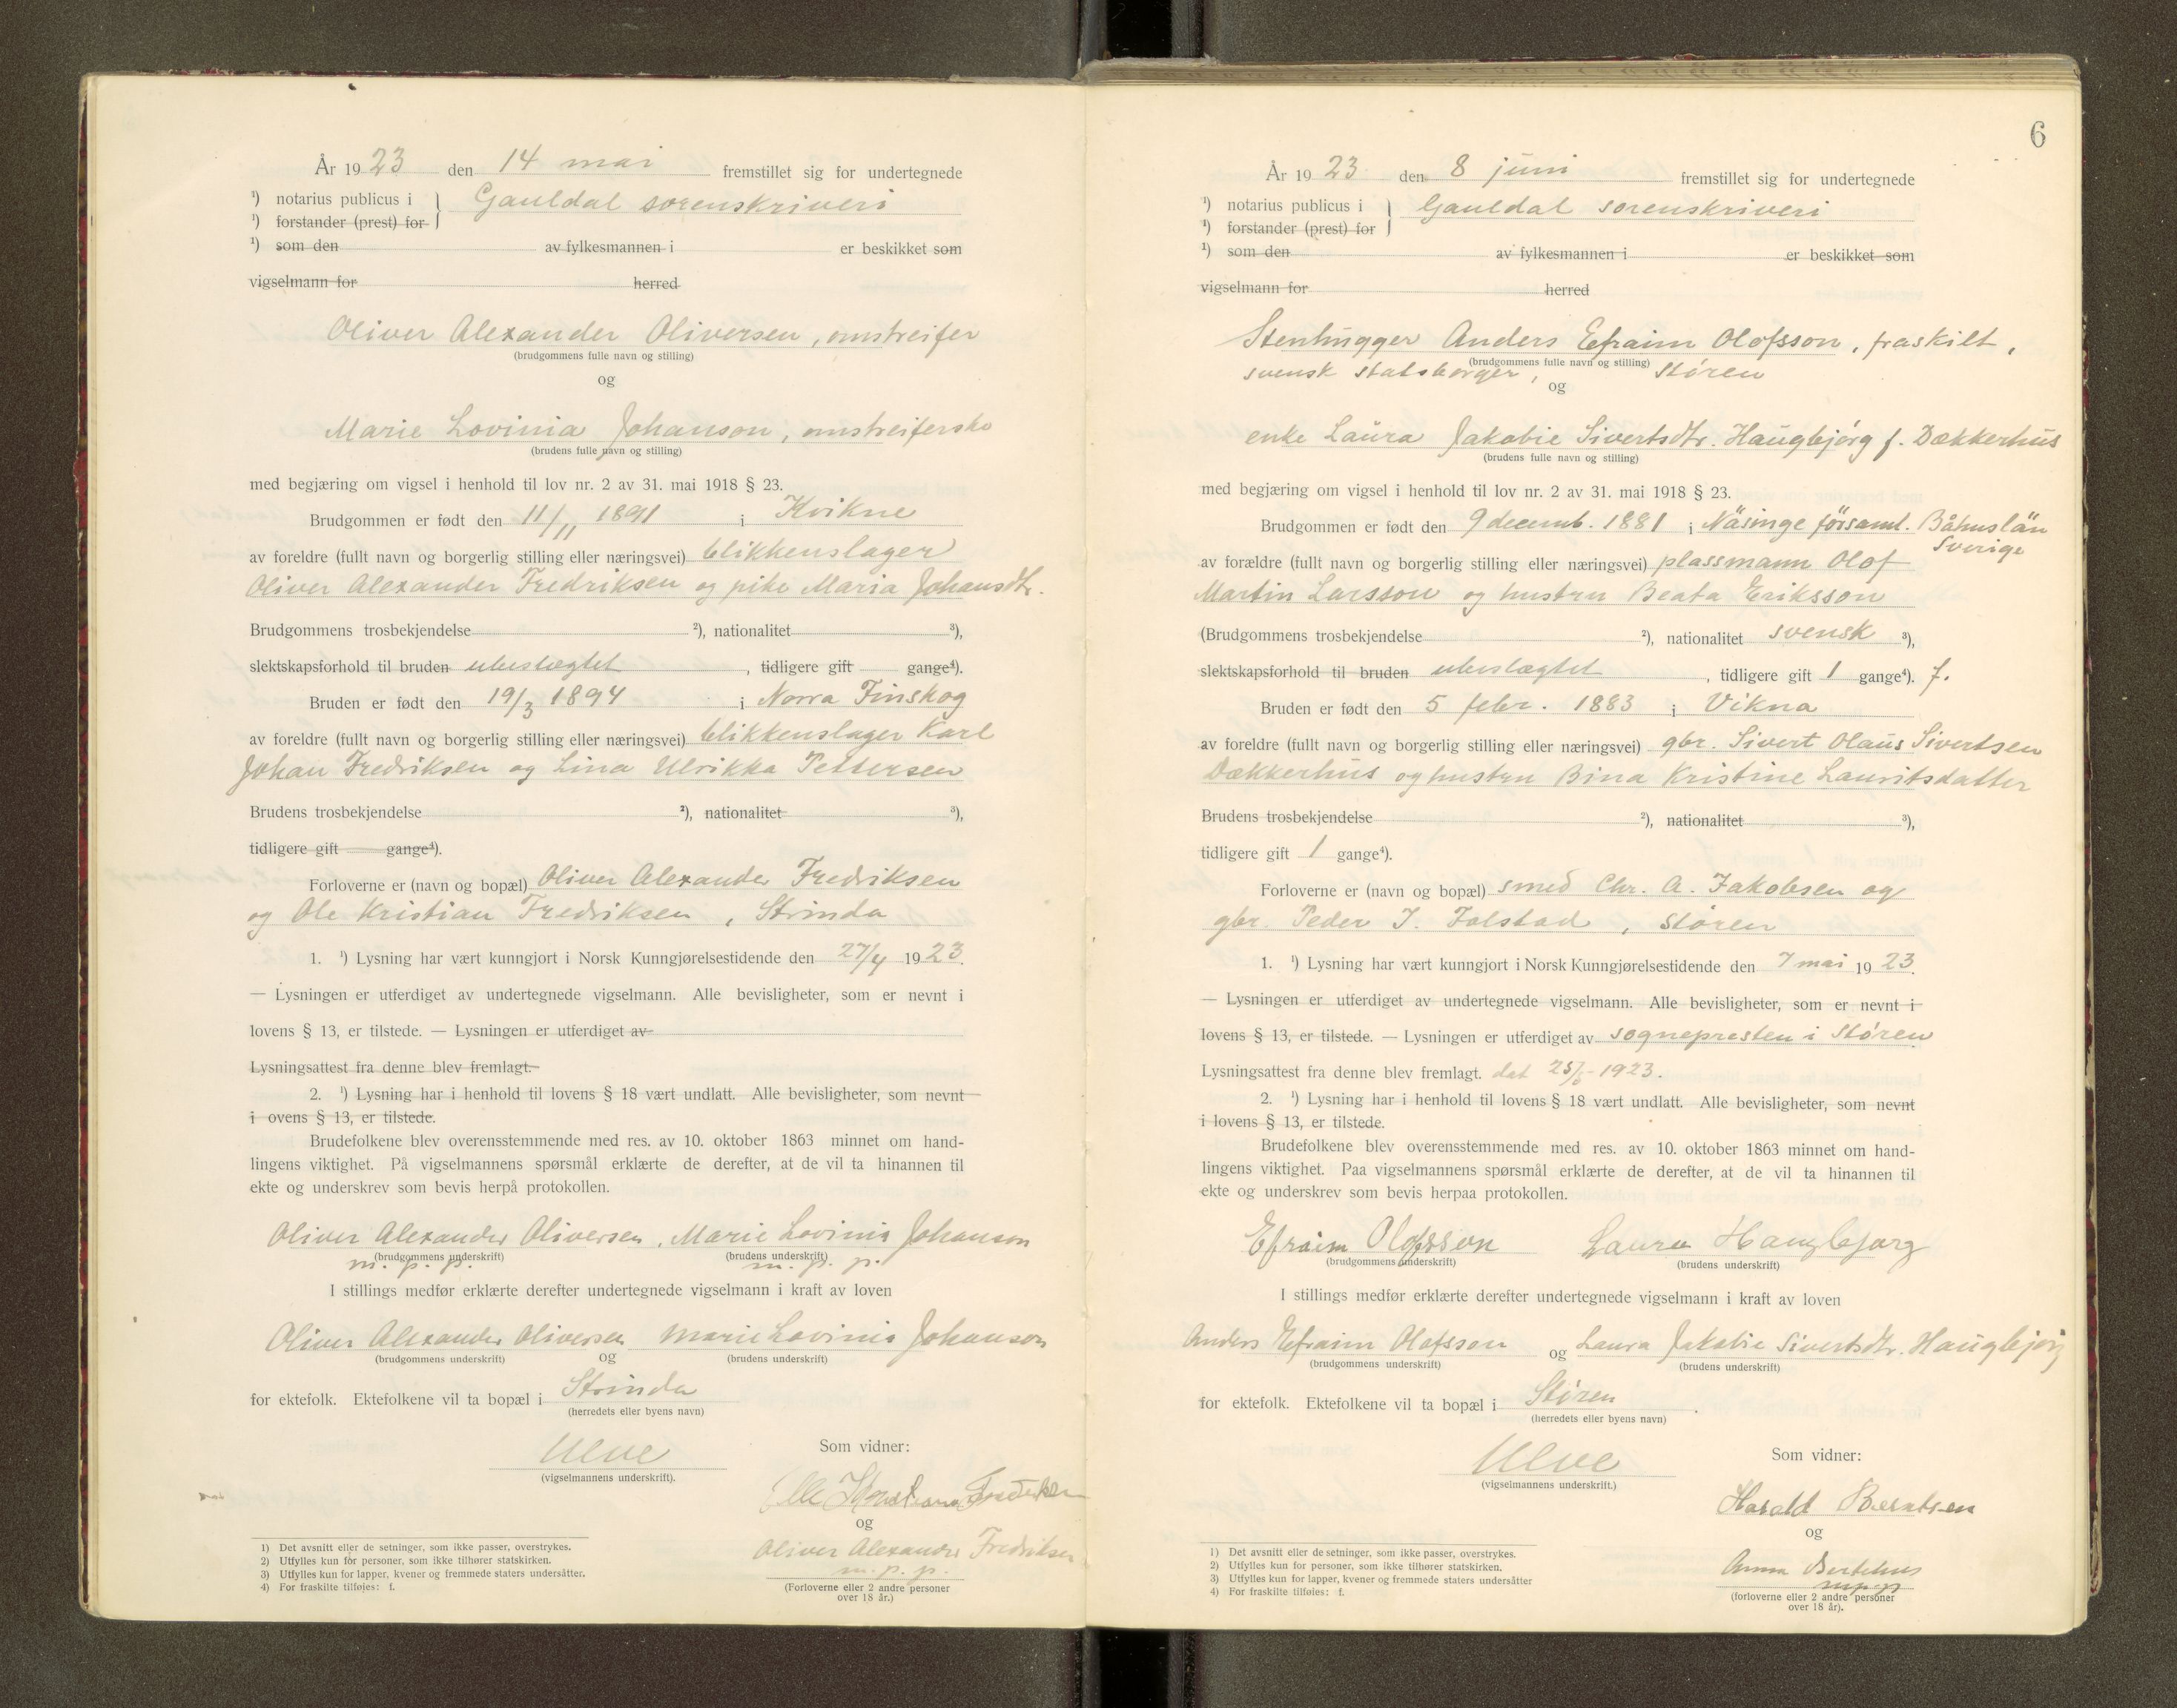 År 1923 den 14 mai fremstillet sig for undertegnede
¹) notarius publicus i } Gauldal sorenskriveri
¹) forstander (prest) for
¹) som den av fylkesmannen i er beskikket som
vigselmann for herred
Oliver Alexander Oliversen, omstreifer
(brudgommens fulle navn og stilling)
og
Marie Lovinia Johanson, omstreiferske
(brudens fulle navn og stilling)
med begjæring om vigsel i henhold til lov nr. 2 av 31. mai 1918 § 23.
Brudgommen er født den 11/11 1891 i Kvikne
av foreldre (fullt navn og borgerlig stilling eller næringsvei) blikkenslager
Oliver Alexander Fredriksen og pike Maria Johansdtr.
Brudgommens trosbekjendelse ²), nationalitet ³),
slektskapsforhold til bruden ubeslægtet, tidligere gift gange⁴).
Bruden er født den 19/3 1894 i Norra Finskog
av foreldre (fullt navn og borgerlig stilling eller næringsvei) blikkenslager Karl
Johan Fredriksen og Lina Ulrikka Pettersen
Brudens trosbekjendelse ²), nationalitet ³),
tidligere gift gange⁴).
Forloverne er (navn og bopæl) Oliver Alexander Fredriksen
og Ole Kristian Fredriksen, Strinda
1. ¹) Lysning har vært kunngjort i Norsk Kunngjørelsestidende den 27/4 1923.
— Lysningen er utferdiget av undertegnede vigselmann. Alle bevisligheter, som er nevnt i
lovens § 13, er tilstede. — Lysningen er utferdiget av
Lysningsattest fra denne blev fremlagt.
2. ¹) Lysning har i henhold til lovens § 18 vært undlatt. Alle bevisligheter, som nevnt
i ovens § 13, er tilstede.
Brudefolkene blev overensstemmende med res. av 10. oktober 1863 minnet om hand-
lingens viktighet. På vigselmannens spørsmål erklærte de derefter, at de vil ta hinannen til
ekte og underskrev som bevis herpå protokollen.
Oliver Alexander Oliversen, Marie Lovinia Johanson
(brudgommens underskrift) (brudens underskrift)
m. p. p. m. p. p.
I stillings medfør erklærte derefter undertegnede vigselmann i kraft av loven
Oliver Alexander Oliversen og Marie Lovinia Johanson
(brudgommens underskrift) (brudens underskrift)
for ektefolk. Ektefolkene vil ta bopæl i Strinda
(herredets eller byens navn)
Ulve
(vigselmannens underskrift).
Som vidner:
Fredriksen
og
Oliver Alexander Fredriksen
m. p. p.
(Forloverne eller 2 andre personer
over 18 år.)
1) Det avsnitt eller de setninger, som ikke passer, overstrykes.
2) Utfylles kun for personer, som ikke tilhører statskirken.
3) Utfylles kun for lapper, kvener og fremmede staters undersåtter.
4) For fraskilte tilføies: f.
6
År 1923 den 8 juni fremstillet sig for undertegnede
¹) notarius publicus i } Gauldal sorenskriveri
¹) forstander (prest) for
¹) som den av fylkesmannen i er beskikket som
vigselmann for herred
Stenhugger Anders Efraim Olofsson, fraskilt,
(brudgommens fulle navn og stilling)
svensk statsborger, Støren
og
enke Laura Jakobie Sivertsdtr. Haugbjørg f. Dækkerhus
(brudens fulle navn og stilling)
med begjæring om vigsel i henhold til lov nr. 2 av 31. mai 1918 § 23.
Brudgommen er født den 9 decemb. 1881 i Näsinge församl. Båhuslän
Sverige
av forældre (fullt navn og borgerlig stilling eller næringsvei) plassmann Olof
Martin Larsson og hustru Beata Eriksson
(Brudgommens trosbekjendelse ²), nationalitet svensk ³),
slektskapsforhold til bruden ubeslægtet, tidligere gift 1 gange⁴). f.
Bruden er født den 5 febr. 1883 i Vikna
av foreldre (fullt navn og borgerlig stilling eller næringsvei) gbr. Sivert Olaus Sivertsen
Dækkerhus og hustru Bina Kristine Lauritsdatter
Brudens trosbekjendelse ²), nationalitet ³),
tidligere gift 1 gange⁴).
Forloverne er (navn og bopæl) smed Chr. A. Jakobsen og
gbr. Peder J. Folstad, Støren
1. ¹) Lysning har vært kunngjort i Norsk Kunngjørelsestidende den 7 mai 1923.
— Lysningen er utferdiget av undertegnede vigselmann. Alle bevisligheter, som er nevnt i
lovens § 13, er tilstede. — Lysningen er utferdiget av sognepresten i Støren
Lysningsattest fra denne blev fremlagt. dat 25/5-1923.
2. ¹) Lysning har i henhold til lovens § 18 vært undlatt. Alle bevisligheter, som nevnt
i lovens § 13, er tilstede.
Brudefolkene blev overensstemmende med res. av 10. oktober 1863 minnet om hand-
lingens viktighet. Paa vigselmannens spørsmål erklærte de derefter, at de vil ta hinannen til
ekte og underskrev som bevis herpaa protokollen.
Efraim Olofsson Laura Haugbjørg
(brudgommens underskrift) (brudens underskrift)
I stillings medfør erklærte derefter undertegnede vigselmann i kraft av loven
Anders Efraim Olofsson og Laura Jakobie Sivertsdtr. Haugbjørg
(brudgommens underskrift) (brudens underskrift)
for ektefolk. Ektefolkene vil ta bopæl i Støren.
(herredets eller byens navn)
Ulve
(vigselmannens underskrift.)
Som vidner:
Harald Berntsen
og
Anna
mpp
(forloverne eller 2 andre personer
over 18 år).
1) Det avsnitt eller de setninger, som ikke passer, overstrykes.
2) Utfylles kun for personer, som ikke tilhører statskirken.
3) Utfylles kun for lapper, kvener og fremmede staters undersåtter
4) For fraskilte tilføies: f.